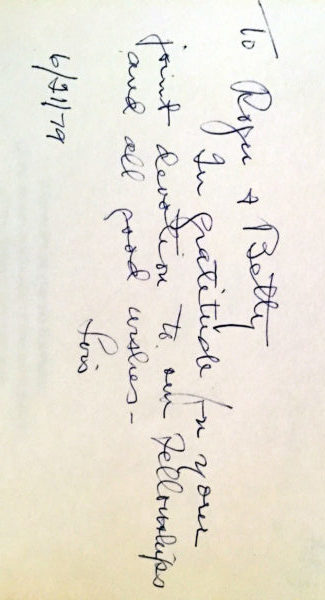 To Roger & Betty
In gratitude for your
joint devotion to our Fellowships
and all good wishes-
Lois
6/21/79